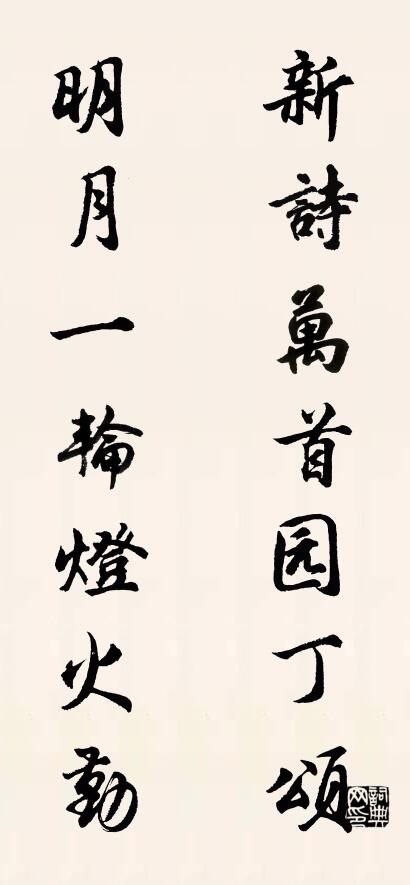 新詩萬首园丁頌
明月一輪燈火勤
詞典網印